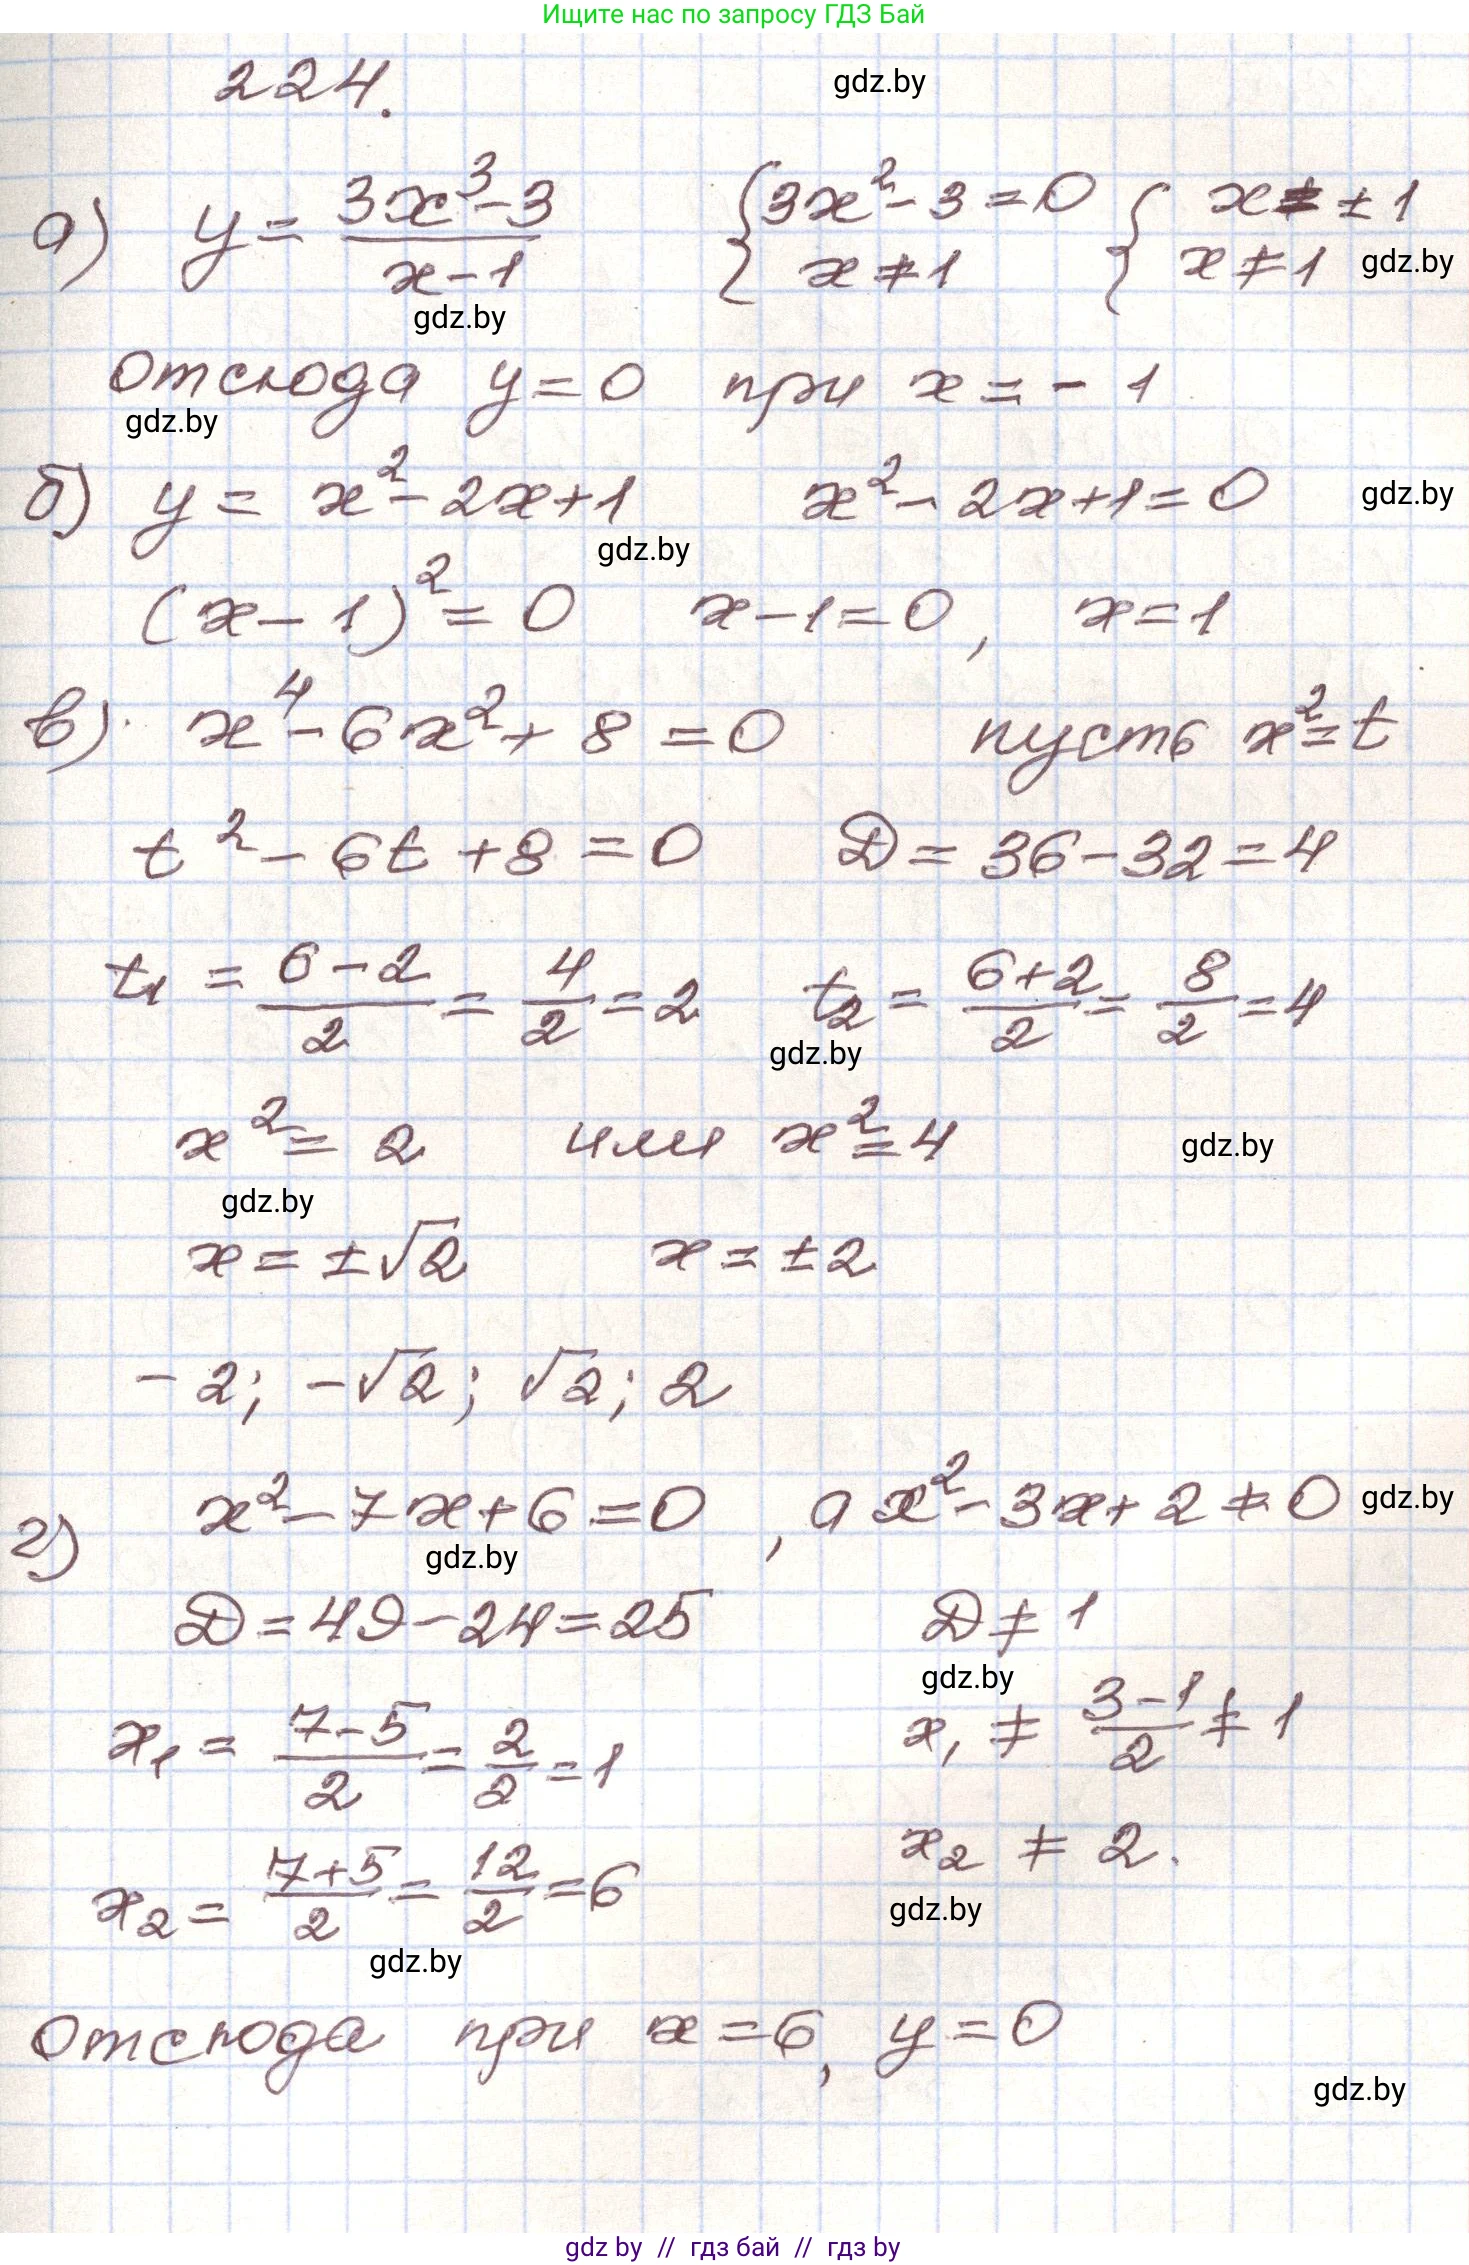 Ищите нас по запросу ГДЗ Бай
224.
gdz.by
а) y = (3x³-3)/(x-1) {3x²-3=0 x≠1 {x=±1 x≠1
gdz.by
gdz.by
отсюда y=0 при x=-1
gdz.by
б) y = x²-2x+1 x²-2x+1=0
gdz.by
gdz.by
(x-1)²=0 x-1=0, x=1
в) x⁴-6x²+8=0 пусть x²=t
t²-6t+8=0 D=36-32=4
t₁ = (6-2)/2 = 4/2 = 2 t₂ = (6+2)/2 = 8/2 = 4
gdz.by
x²=2 или x²=4
gdz.by
gdz.by
x=±√2 x=±2
-2; -√2; √2; 2
г) x²-7x+6=0, а x²-3x+2≠0
gdz.by
gdz.by
D=49-24=25 D≠1
gdz.by
x₁ = (7-5)/2 = 2/2 = 1 x₁ ≠ (3-1)/2 ≠ 1
x₂ = (7+5)/2 = 12/2 = 6 x₂ ≠ 2.
gdz.by
gdz.by
отсюда при x=6, y=0
gdz.by
gdz by // гдз бай // гдз by